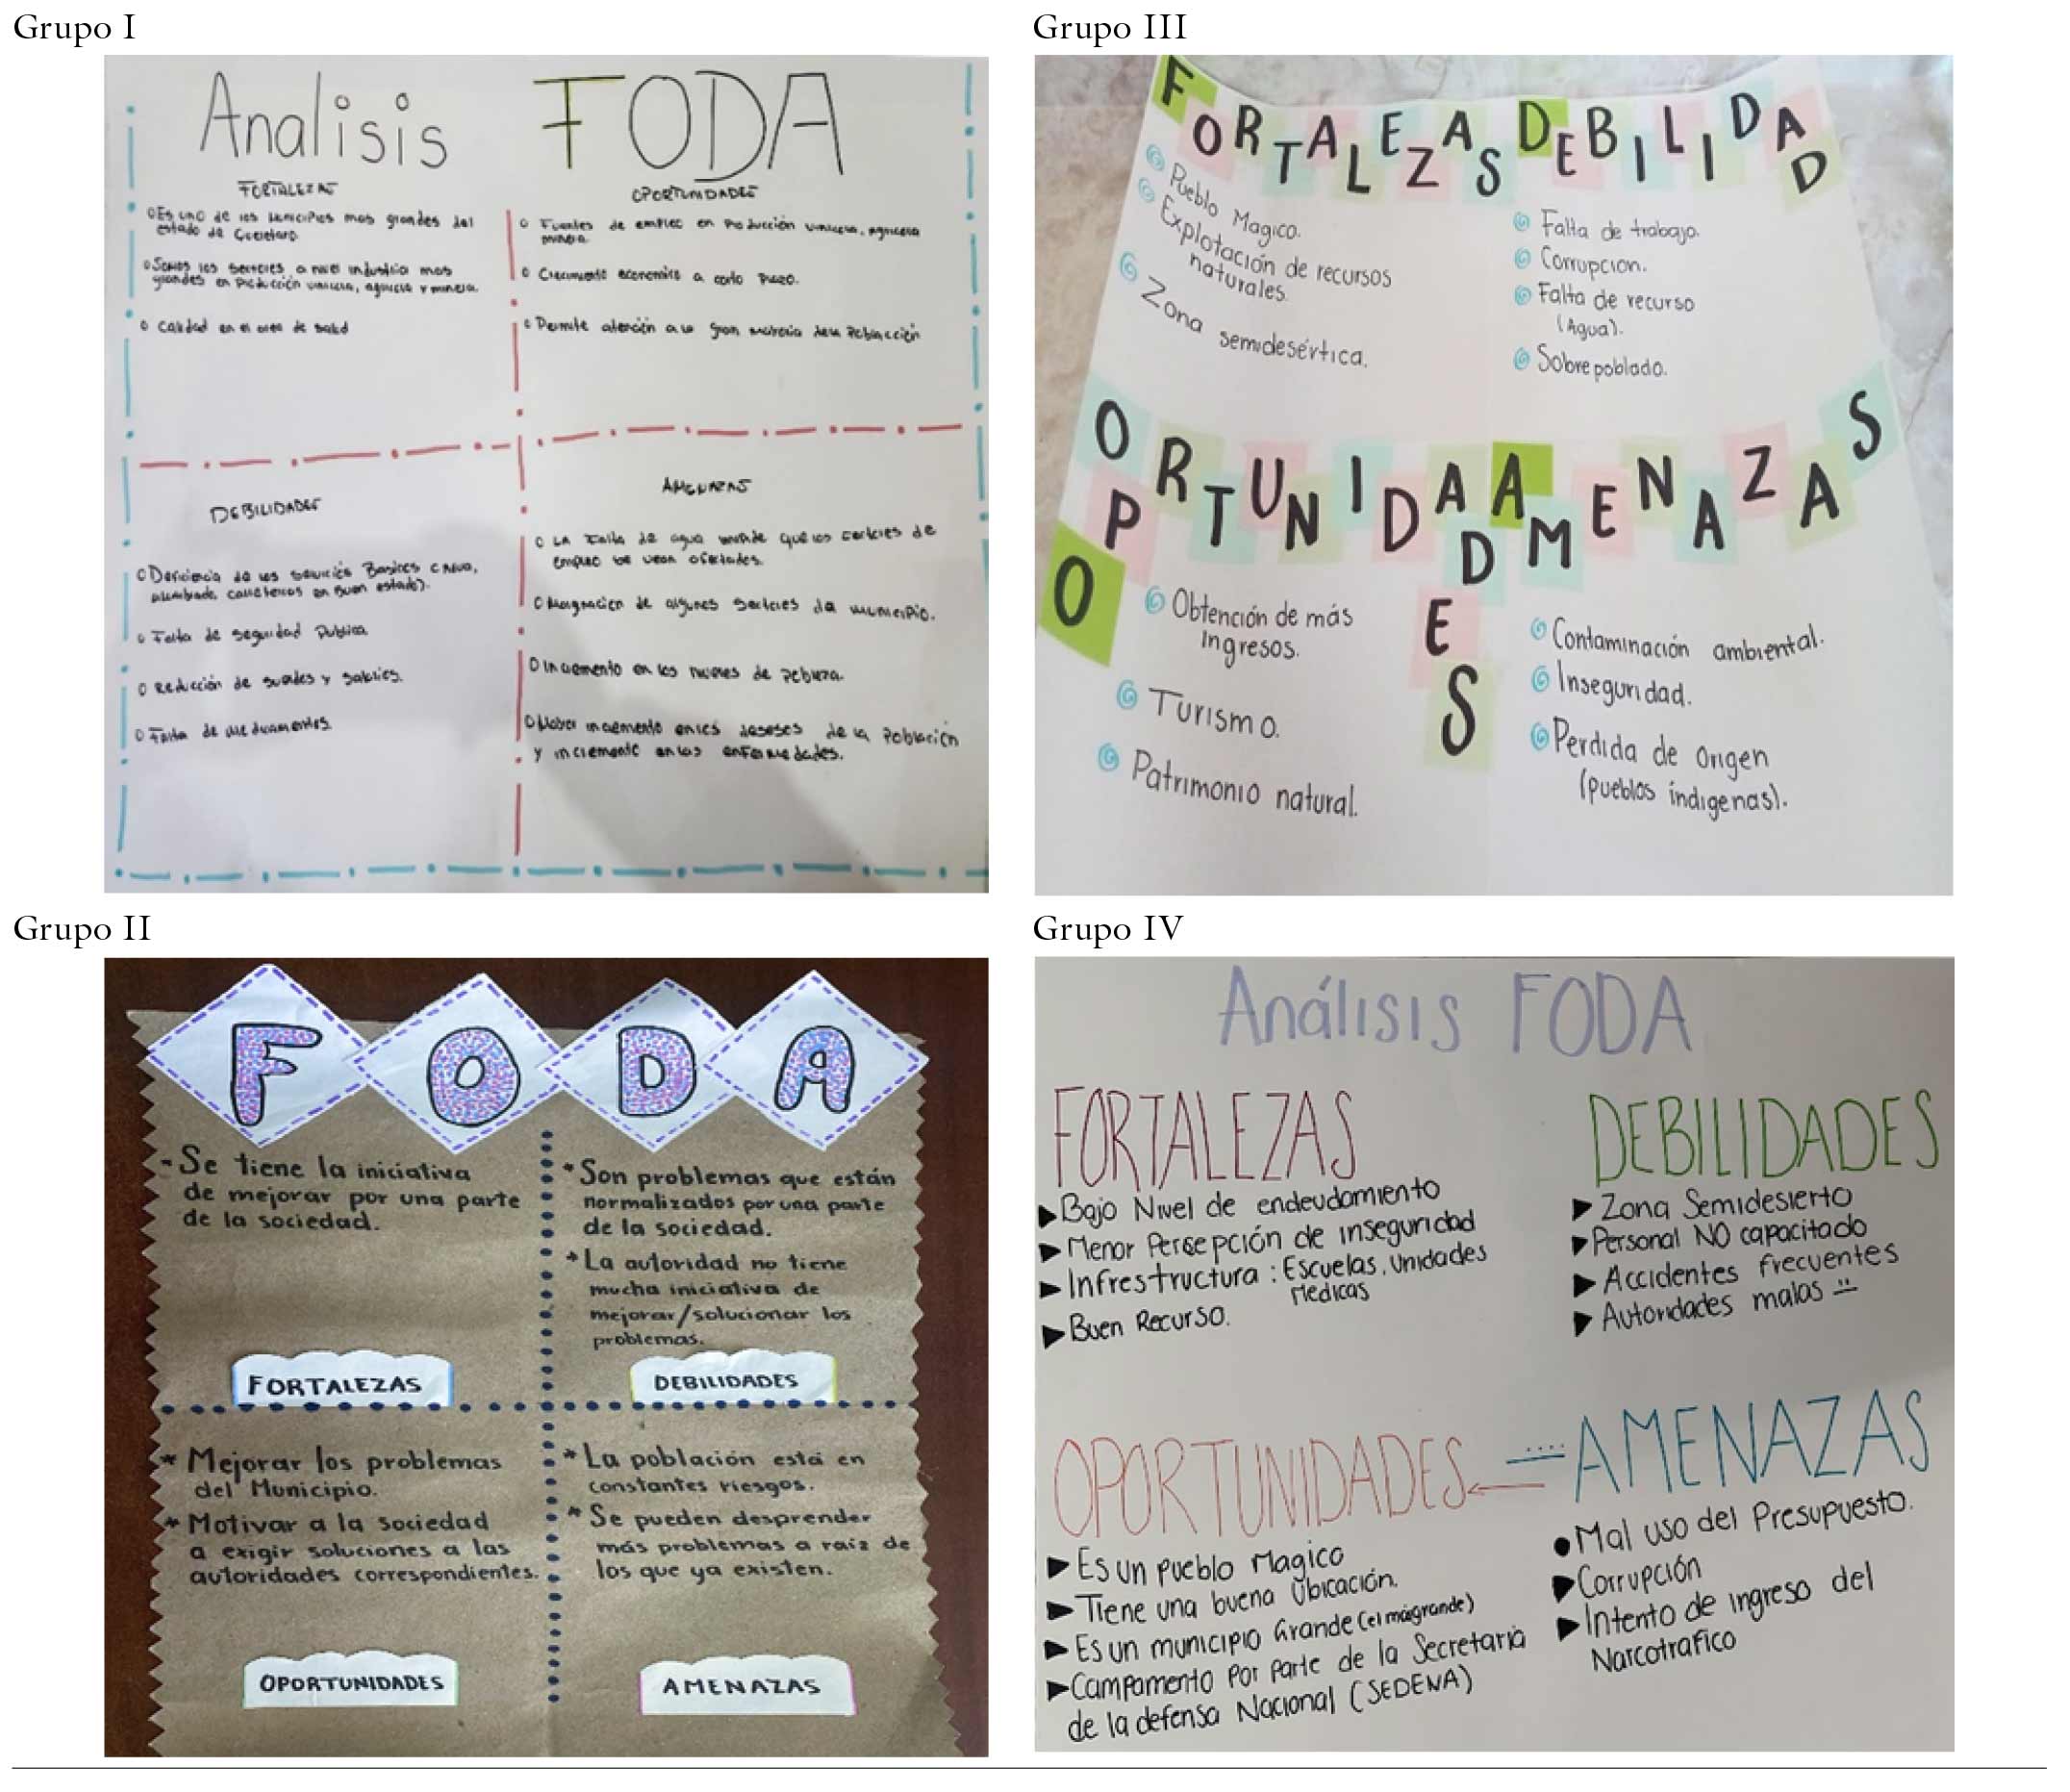 Grupo I
Analisis FODA
FORTALEZAS
Es uno de los municipios mas grandes del
estado de Queretaro
Somos los sectores a nivel industria mas
grandes en Producción vinicola, agricola y minera.
Calidad en el area de salud
OPORTUNIDADES
Fuentes de empleo en Producción vinicola, agricola
minera.
Crecimiento economico a corto plazo.
Permite atención a la gran mayoria de la Población
DEBILIDADES
Deficiencia de los servicios Basicos (Agua,
alumbrado, carreteras en buen estado).
Falta de seguridad Publica
Reducción de sueldos y
Falta de medicamentos.
AMENAZAS
LA falta de agua que los sectores de
empleo se vean afectados.
Marginacion de algunos sectores da municipio.
Incremento en los niveles de Pobreza.
Haber incremento en los de la Población
y incremento en las enfermedades.
Grupo III
FORTALEZAS DEBILIDAD
Pueblo Magico.
Explotación de recursos
naturales.
Zona semidesértica.
Falta de trabajo.
Corrupcion.
Falta de recurso
(Agua).
Sobrepoblado.
OPORTUNIDADES AMENAZAS
O
Obtención de más
ingresos.
Turismo.
Patrimonio natural.
Contaminación ambiental.
Inseguridad.
Perdida de origen
(pueblos indigenas).
Grupo II
FODA
- Se tiene la iniciativa
de mejorar por una parte
de la sociedad.
FORTALEZAS
* Son problemas que están
normalizados por una parte
de la sociedad.
* La autoridad no tiene
mucha iniciativa de
mejorar/solucionar los
problemas.
DEBILIDADES
* Mejorar los problemas
del Municipio.
* Motivar a la sociedad
a exigir soluciones a las
autoridades correspondientes.
OPORTUNIDADES
* La población está en
constantes riesgos.
* Se pueden desprender
más problemas a raíz de
los que ya existen.
AMENAZAS
Grupo IV
Análisis FODA
FORTALEZAS
Bajo Nivel de endeudamiento
Menor Persepción de inseguridad
Infrestructura : Escuelas, Unidades
Medicas
Buen Recurso.
DEBILIDADES
Zona Semidesierto
Personal NO capacitado
Accidentes frecuentes
Autoridades malas
OPORTUNIDADES
Es un pueblo Magico
Tiene una buena Ubicación.
Es un municipio Grande (el más grande)
Campamento por parte de la Secretaria
de la defensa Nacional (SEDENA)
AMENAZAS
Mal uso del Presupuesto.
Corrupción
Intento de ingreso del
Narcotrafico